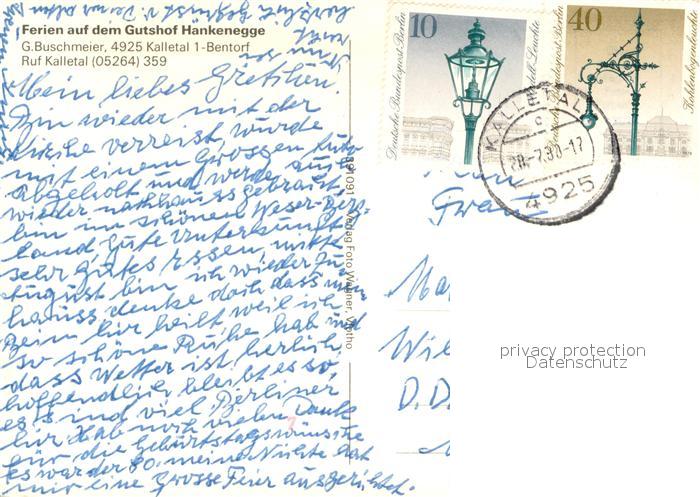 Ferien auf dem Gutshof Hankenegge
G.Buschmeier, 4925 Kalletal 1-Bentorf
Ruf Kalletal (05264) 359
Mein liebes Gretchen.
Bin wieder mit der
Kirche verreist, wurde
mit einem Grossen Auto
abgeholt und werde auch
wieder nachhaus gebracht,
bin im schönen Weser-Berg-
land, gute Unterkunft
sehr gutes Essen, mitte
August bin ich wieder zu
hauss denke doch dass mein
Bein hir heilt, weil ich
so schöne Ruhe hab und
dass Wetter ist herlich,
hoffendlich bleibt es so,
es sind viel Berliner
hir. Hab noch vielen Dank
für die Geburtstagswünsche
es war der 80. meine Nichte hat
mir eine Grosse Feier ausgerichtet.
Verlag Foto Wagner, Vlotho
10
Deutsche Bundespost Berlin
40
KALLETAL
c
-17
4925
Frau
Ma
Wil
D.D.
privacy protection
Datenschutz